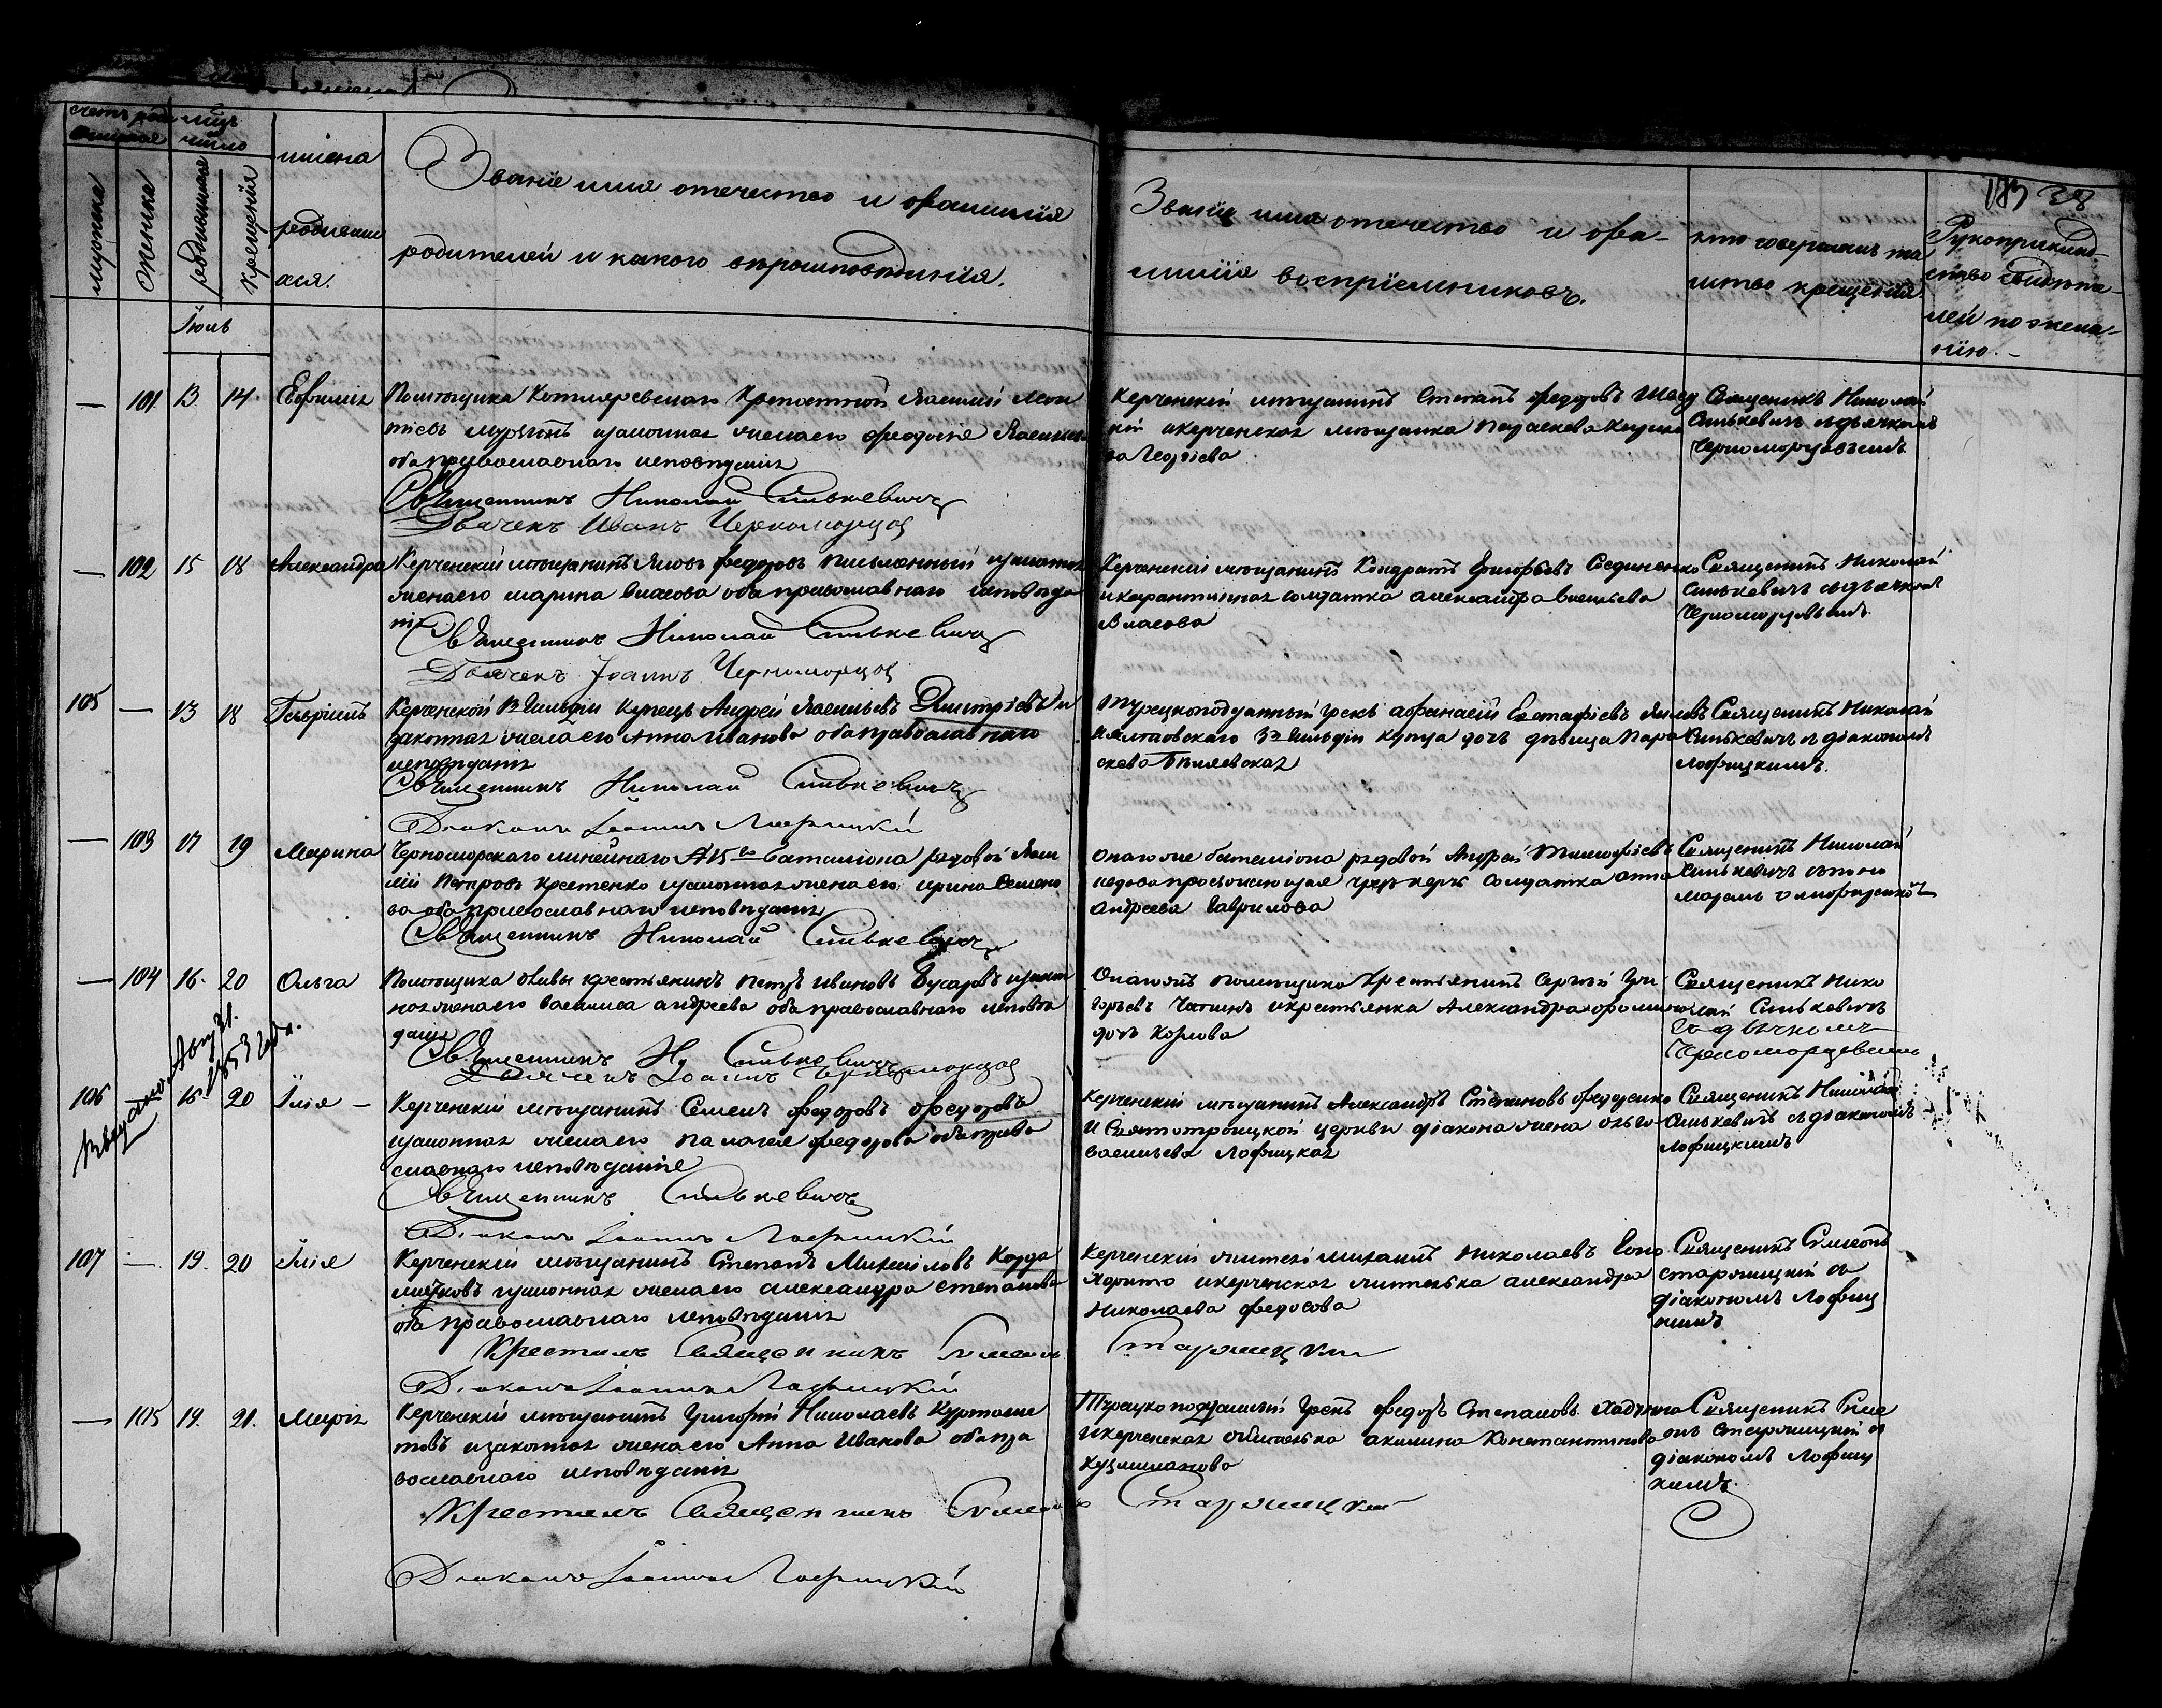 183 38
имена
родивших
ася.
мужска
женска
рожденія
крещенія
Іюль
Званіе имя отечество и фамилія
родителей и какого вѣроисповѣданія.
Званіе имя отечество и фа-
милія воспріемниковъ.
кто совершилъ та
инство крещенія
Рукоприклад-
ство свидѣте-
лей по жела-
нію.
— 101 13 14 Евфимія
Помѣщика Крепостной Василій Леон
тіевъ законная жена его Феодосія Васильева
оба православнаго исповѣданія
Священникъ Николай Синькевичъ
Дьячекъ Иванъ Черноморцов
Керченскій мѣщанинъ Степанъ Федоровъ
и керченская мѣщанка Параскева
Георгіева
Священикъ Николай
Синькевичъ съ дьячкомъ
Черноморцовымъ
— 102 15 18 Александра
Керченскій мѣщанинъ Яковъ Федоровъ Письменный и законная
жена его Марина Власова оба православнаго исповѣда
нія
Священникъ Николай Синькевичъ
Дьячекъ Іоаннъ Черноморцов
Керченскій мѣщанинъ Кондратъ Григорьевъ Соединенко
и карантинная солдатка Александра Васильева
Власова
Священикъ Николай
Синькевичъ съ дьячкомъ
Черноморцовымъ
105 — 13 18 Гавріилъ
Керченской гильдіи Купецъ Андрей Васильевъ Дмитріевъ и
законная жена его Анна Иванова оба православнаго
исповѣданія
Священникъ Николай Синькевичъ
Діаконъ Іоаннъ Лофицкій
Турецкоподданный Грекъ Афанасій Евстафіевъ
3й гильдіи купца дочь дѣвица Пара
скева
Священикъ Николай
Синькевичъ съ діакономъ
Лофицкимъ
— 103 17 19 Марина
Черноморскаго линейнаго №15го баталіона рядовой Васи
лій Петровъ Кистенко законная жена его Ирина Семено
ва оба православнаго исповѣданія
Священникъ Николай Синькевичъ
Онаго же баталіона рядовой Андрей Тимофѣевъ
солдатка Анна
Андреева Гаврилова
Священикъ Николай
Синькевичъ съ поно
маремъ
— 104 16. 20 Ольга
Помѣщика Оливы крестьянинъ Петръ Ивановъ Гусаровъ и закон
ная жена его Василиса Андреева оба православнаго исповѣ
данія
Священникъ Н Синькевичъ
Дьячекъ Іоаннъ Черноморцов
Онагожъ помѣщика Крестьянинъ Сергѣй Гри
горьевъ Чагинъ и крестьянка Александра
дочь Козлова
Священикъ Нико
лай Синькевичъ
съ дьячкомъ
Черноморцевымъ
Выдано Авгу 31. 1853 года.
106 — 15 20 Ілія
Керченскій мѣщанинъ Семенъ Федоровъ Федоровъ
и законная жена его Пелагея Федорова оба право
славнаго исповѣданія
Священникъ Синькевичъ
Діаконъ Іоаннъ Лофицкій
Керченскій мѣщанинъ Александръ Степановъ Федоренко
и Святотроицкой церкви діакона жена Ольга
Васильева Лофицкая
Священикъ Николай
Синькевичъ съ діакономъ
Лофицкимъ
107 — 19. 20 Ілія
Керченскій мѣщанинъ Степанъ Михайловъ
законная жена его Александра Степанова
оба православнаго исповѣданія
Крестилъ Священникъ Симеонъ Старицкій
Діаконъ Іоаннъ Лофицкій
Керченскій житель Михаилъ Николаевъ
и керченская жителька Александра
Николаева Федосова
Священикъ Симеонъ
Старицкій съ
діакономъ Лофиц
кимъ
— 105 19. 21. Марія
Керченскій мѣщанинъ Григорій Николаевъ
и законная жена его Анна Иванова оба пра
вославнаго исповѣданія
Крестилъ Священникъ Симеонъ Старицкій
Діаконъ Іоаннъ Лофицкій
Турецкоподданный Грекъ Федоръ Степановъ
и керченская жителька Акилина Константинова
Священикъ Симе
онъ Старицкій съ
діакономъ Лофиц
кимъ.